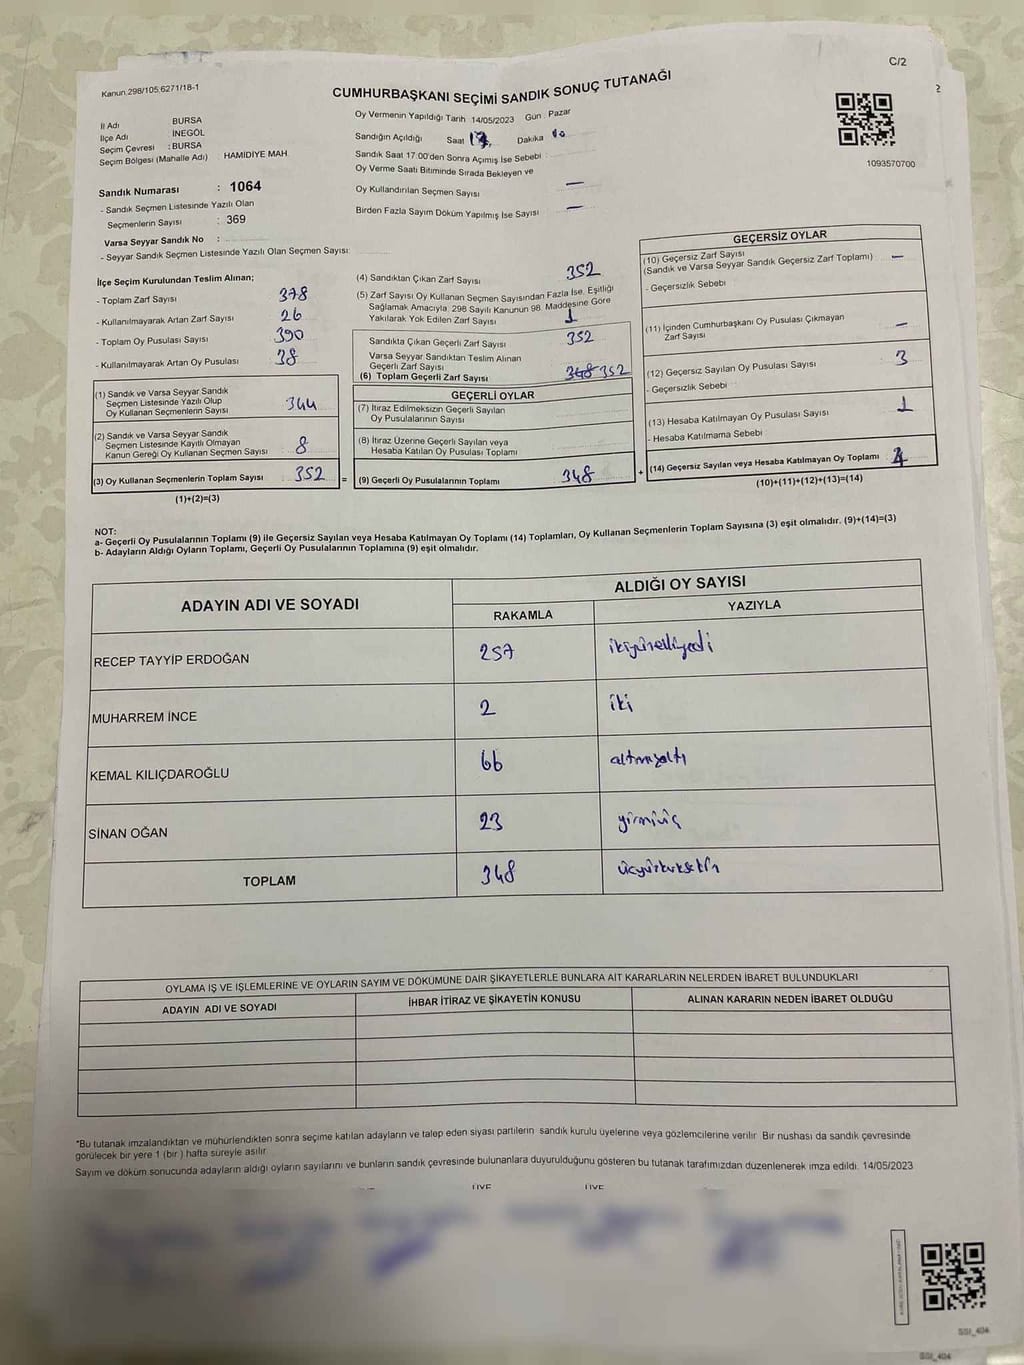 C/2
Kanun 298/105.6271/18-1
CUMHURBAŞKANI SEÇİMİ SANDIK SONUÇ TUTANAĞI
1093570700
İl Adı BURSA
İlçe Adı İNEGÖL
Seçim Çevresi : BURSA
Seçim Bölgesi (Mahalle Adı) HAMIDIYE MAH.
Sandık Numarası : 1064
- Sandık Seçmen Listesinde Yazılı Olan
Seçmenlerin Sayısı : 369
Varsa Seyyar Sandık No :
- Seyyar Sandık Seçmen Listesinde Yazılı Olan Seçmen Sayısı:
Oy Vermenin Yapıldığı Tarih 14/05/2023 Gün : Pazar
Sandığın Açıldığı Saat 17 Dakika 10
Sandık Saat 17:00'den Sonra Açımış İse Sebebi :
Oy Verme Saati Bitiminde Sırada Bekleyen ve
Oy Kullandırılan Seçmen Sayısı —
Birden Fazla Sayım Döküm Yapılmış İse Sayısı —
İlçe Seçim Kurulundan Teslim Alınan;
- Toplam Zarf Sayısı 378
- Kullanılmayarak Artan Zarf Sayısı 26
- Toplam Oy Pusulası Sayısı 390
- Kullanılmayarak Artan Oy Pusulası 38
(1) Sandık ve Varsa Seyyar Sandık
Seçmen Listesinde Yazılı Olup
Oy Kullanan Seçmenlerin Sayısı 344
(2) Sandık ve Varsa Seyyar Sandık
Seçmen Listesinde Kayıtlı Olmayan
Kanun Gereği Oy Kullanan Seçmen Sayısı 8
(3) Oy Kullanan Seçmenlerin Toplam Sayısı 352 =
(1)+(2)=(3)
(4) Sandıktan Çıkan Zarf Sayısı 352
(5) Zarf Sayısı Oy Kullanan Seçmen Sayısından Fazla İse, Eşitliği
Sağlamak Amacıyla, 298 Sayılı Kanunun 98. Maddesine Göre
Yakılarak Yok Edilen Zarf Sayısı 1
Sandıkta Çıkan Geçerli Zarf Sayısı 352
Varsa Seyyar Sandıktan Teslim Alınan
Geçerli Zarf Sayısı
(6) Toplam Geçerli Zarf Sayısı 348 352
GEÇERLİ OYLAR
(7) İtiraz Edilmeksizin Geçerli Sayılan
Oy Pusulalarının Sayısı
(8) İtiraz Üzerine Geçerli Sayılan veya
Hesaba Katılan Oy Pusulası Toplamı
(9) Geçerli Oy Pusulalarının Toplamı 348 +
GEÇERSİZ OYLAR
(10) Geçersiz Zarf Sayısı
(Sandık ve Varsa Seyyar Sandık Geçersiz Zarf Toplamı) —
- Geçersizlik Sebebi
(11) İçinden Cumhurbaşkanı Oy Pusulası Çıkmayan
Zarf Sayısı —
(12) Geçersiz Sayılan Oy Pusulası Sayısı 3
- Geçersizlik Sebebi
(13) Hesaba Katılmayan Oy Pusulası Sayısı 1
- Hesaba Katılmama Sebebi
(14) Geçersiz Sayılan veya Hesaba Katılmayan Oy Toplamı 4
(10)+(11)+(12)+(13)=(14)
NOT:
a- Geçerli Oy Pusulalarının Toplamı (9) ile Geçersiz Sayılan veya Hesaba Katılmayan Oy Toplamı (14) Toplamları, Oy Kullanan Seçmenlerin Toplam Sayısına (3) eşit olmalıdır. (9)+(14)=(3)
b- Adayların Aldığı Oyların Toplamı, Geçerli Oy Pusulalarının Toplamına (9) eşit olmalıdır.
ADAYIN ADI VE SOYADI ALDIĞI OY SAYISI
RAKAMLA YAZIYLA
RECEP TAYYİP ERDOĞAN 257 ikiyüzelliyedi
MUHARREM İNCE 2 iki
KEMAL KILIÇDAROĞLU 66 altmışaltı
SİNAN OĞAN 23 yirmiüç
TOPLAM 348 üçyüzkırksekiz
OYLAMA İŞ VE İŞLEMLERİNE VE OYLARIN SAYIM VE DÖKÜMÜNE DAİR ŞİKAYETLERLE BUNLARA AİT KARARLARIN NELERDEN İBARET BULUNDUKLARI
ADAYIN ADI VE SOYADI İHBAR İTİRAZ VE ŞİKAYETİN KONUSU ALINAN KARARIN NEDEN İBARET OLDUĞU
*Bu tutanak imzalandıktan ve mühürlendikten sonra seçime katılan adayların ve talep eden siyasi partilerin sandık kurulu üyelerine veya gözlemcilerine verilir. Bir nüshası da sandık çevresinde
görülecek bir yere 1 (bir) hafta süreyle asılır.
Sayım ve döküm sonucunda adayların aldığı oyların sayılarını ve bunların sandık çevresinde bulunanlara duyurulduğunu gösteren bu tutanak tarafımızdan düzenlenerek imza edildi. 14/05/2023
ÜYE ÜYE
SSI_404
SSI_404